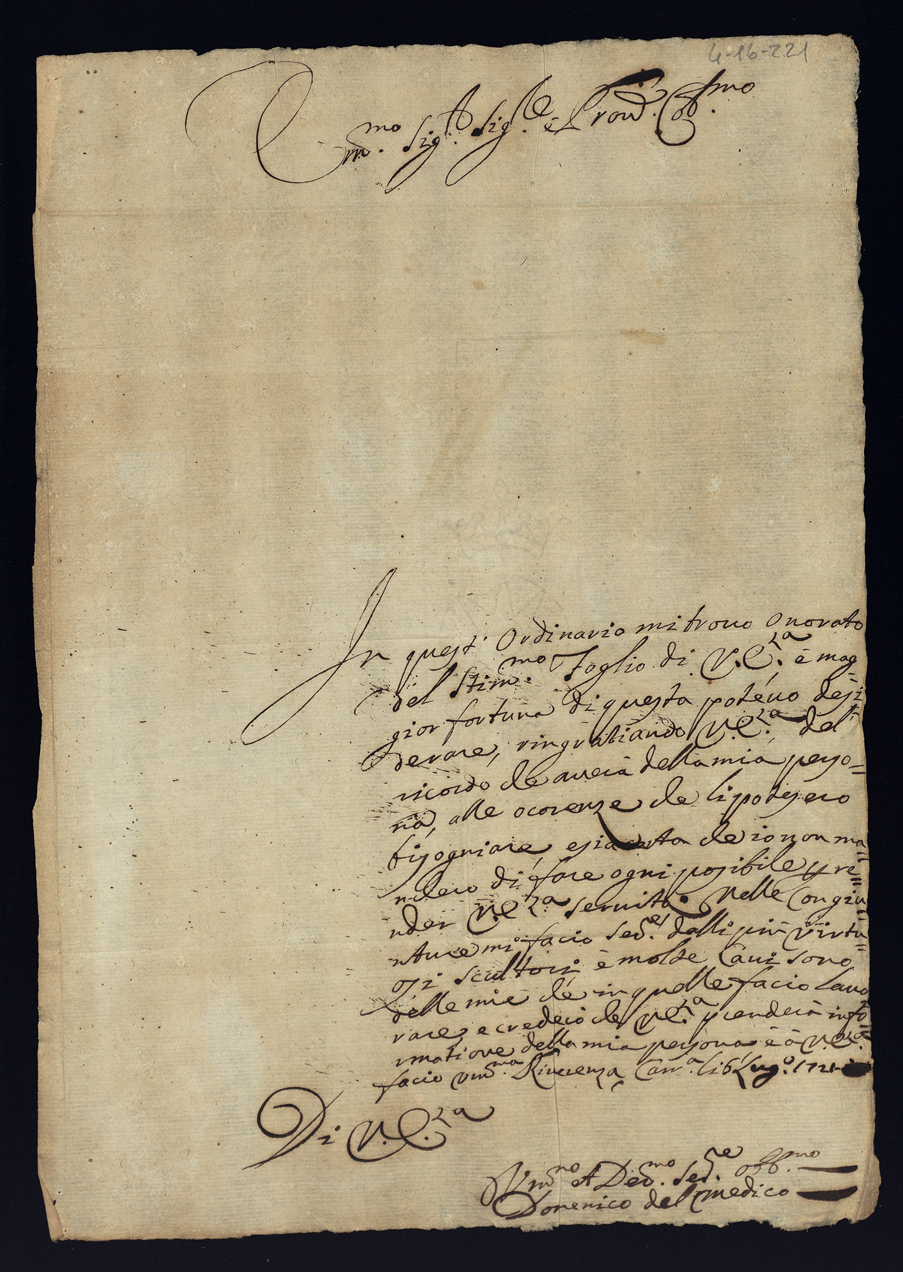 4-16-221
Em.mo Sig.r Sig.re è Pron.e Co.mo
In quest: Ordinario mi trovo Onorato
del Stim.mo Foglio di V.E.za, è mag=
gior fortuna di questa potevo desi=
derare, ringratiando V.E.za, del
ricordo che averà della mia perso=
na, alle ocorenze che li potesero
bisogniare, e sia certa che io non ma=
ncherò di fare ogni posibile p re=
nder V.E.za servita. Nelle Congiu=
nture mi facio Ser.e dalli più virtu=
osi scultori è molte Cavi sono
delle mie che in quelle facio Lavo=
rare, e crederò che V.E.za prenderà info=
rmatione della mia persona è à V.E.za
facio um.ma Riverenza Carr.a li 6 Lug.o 1721
Di V.E.za
Um.mo et Dev.mo Ser.re obb.mo
Domenico del Medico